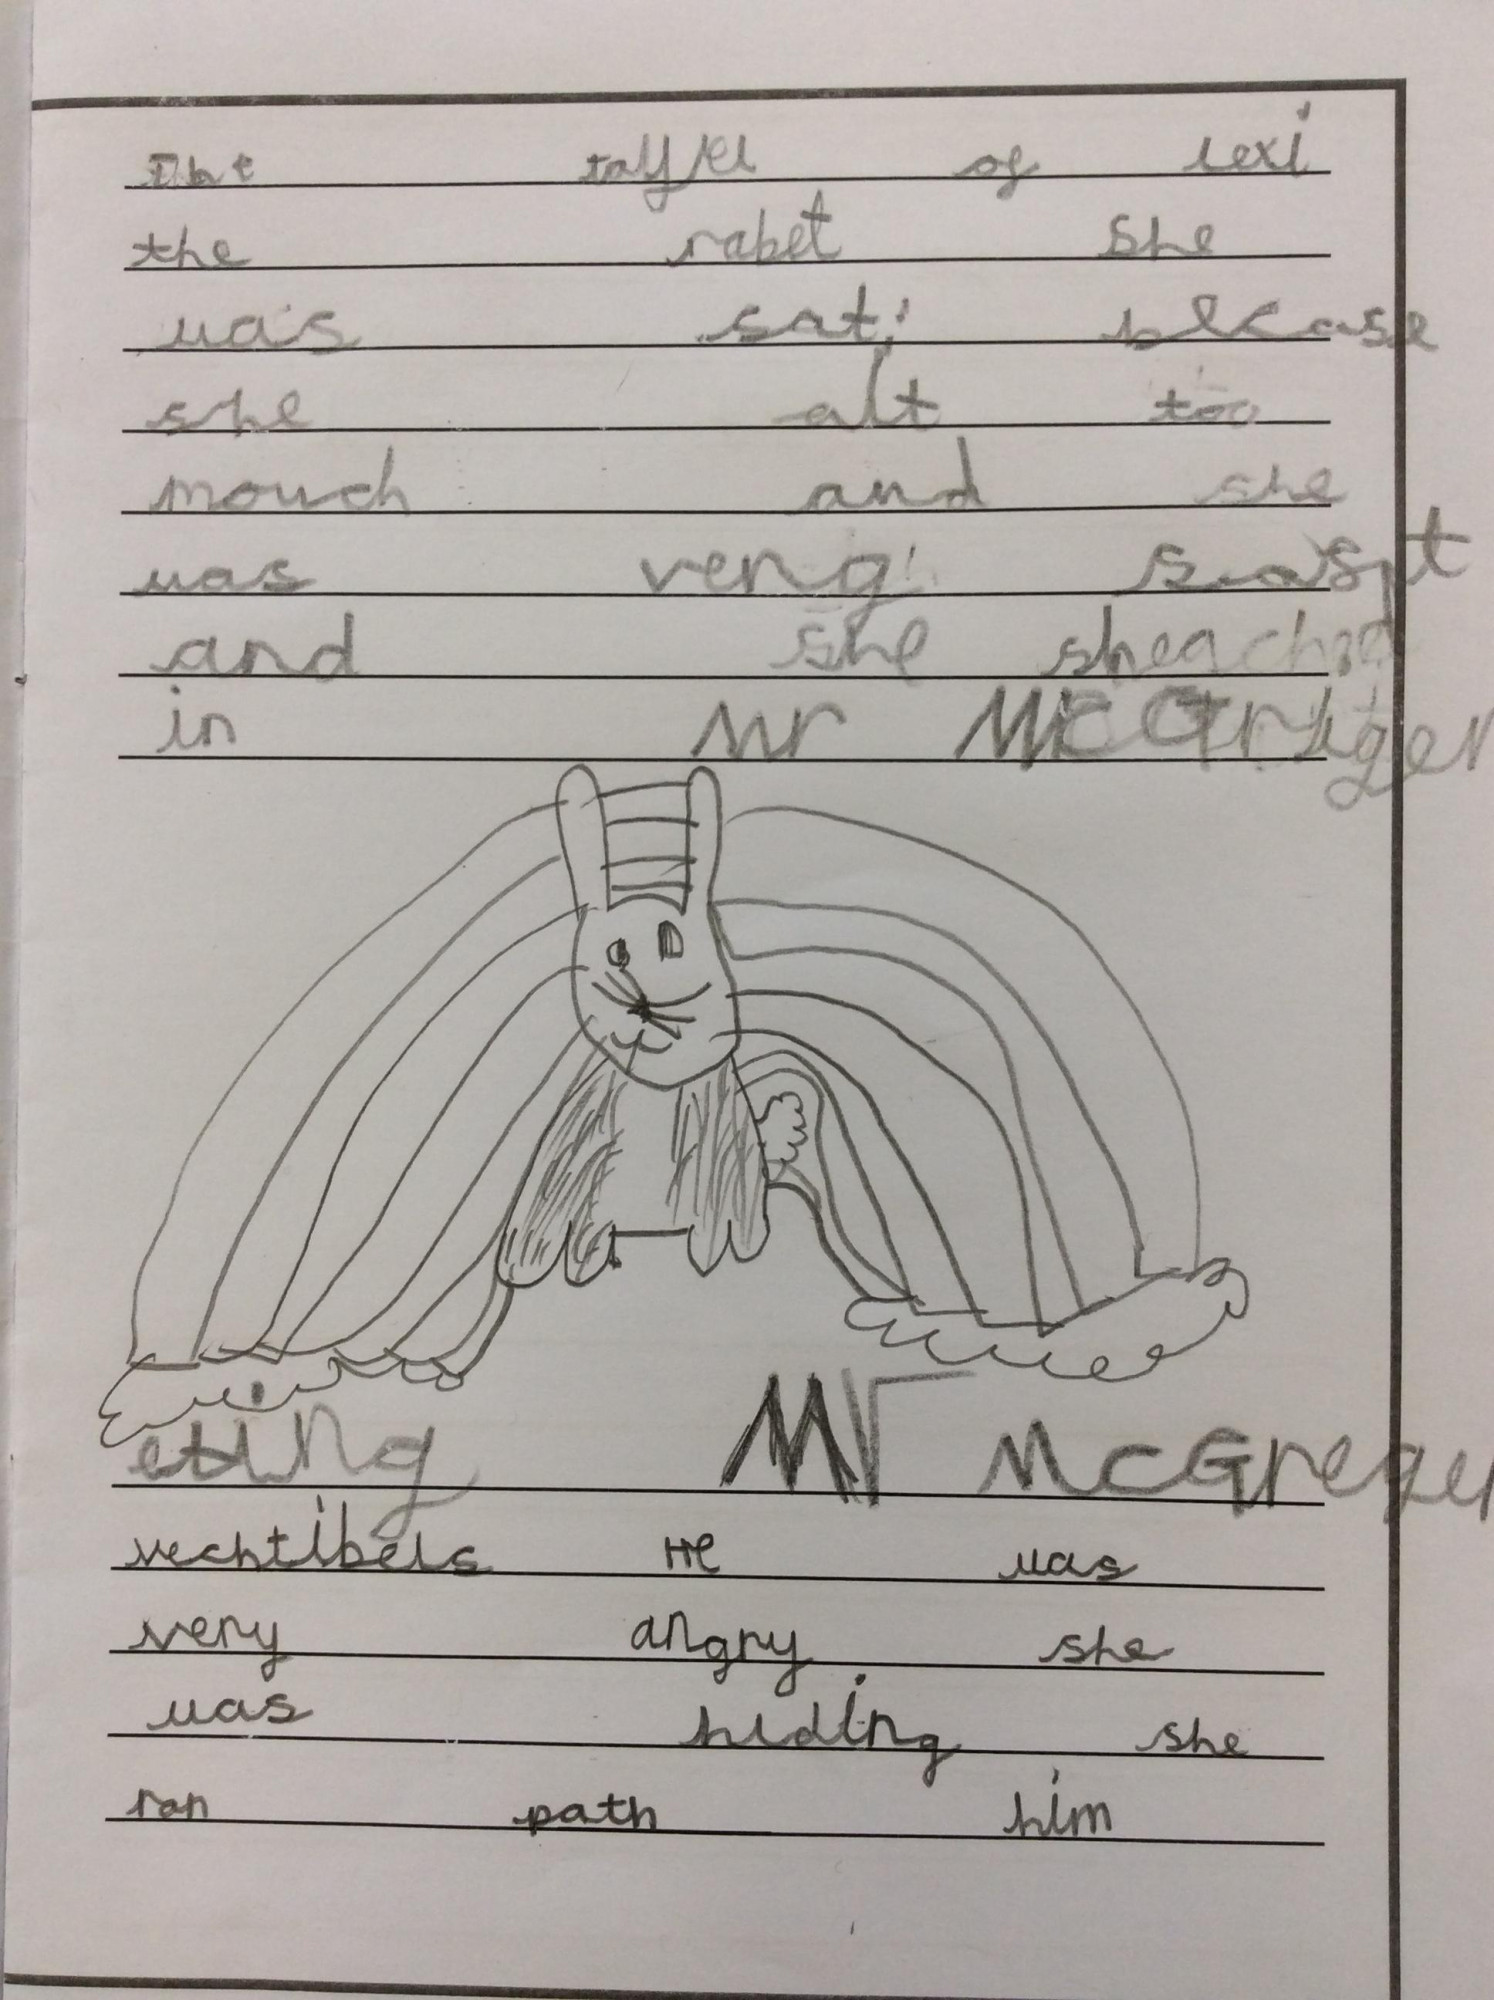 The of lexi
the rabet she
was sat becase
she alt too
mouch and she
was
and she sheached
in Mr McGrger
eting Mr McGreger
vechtibels He was
very angry she
was hiding she
ran path him